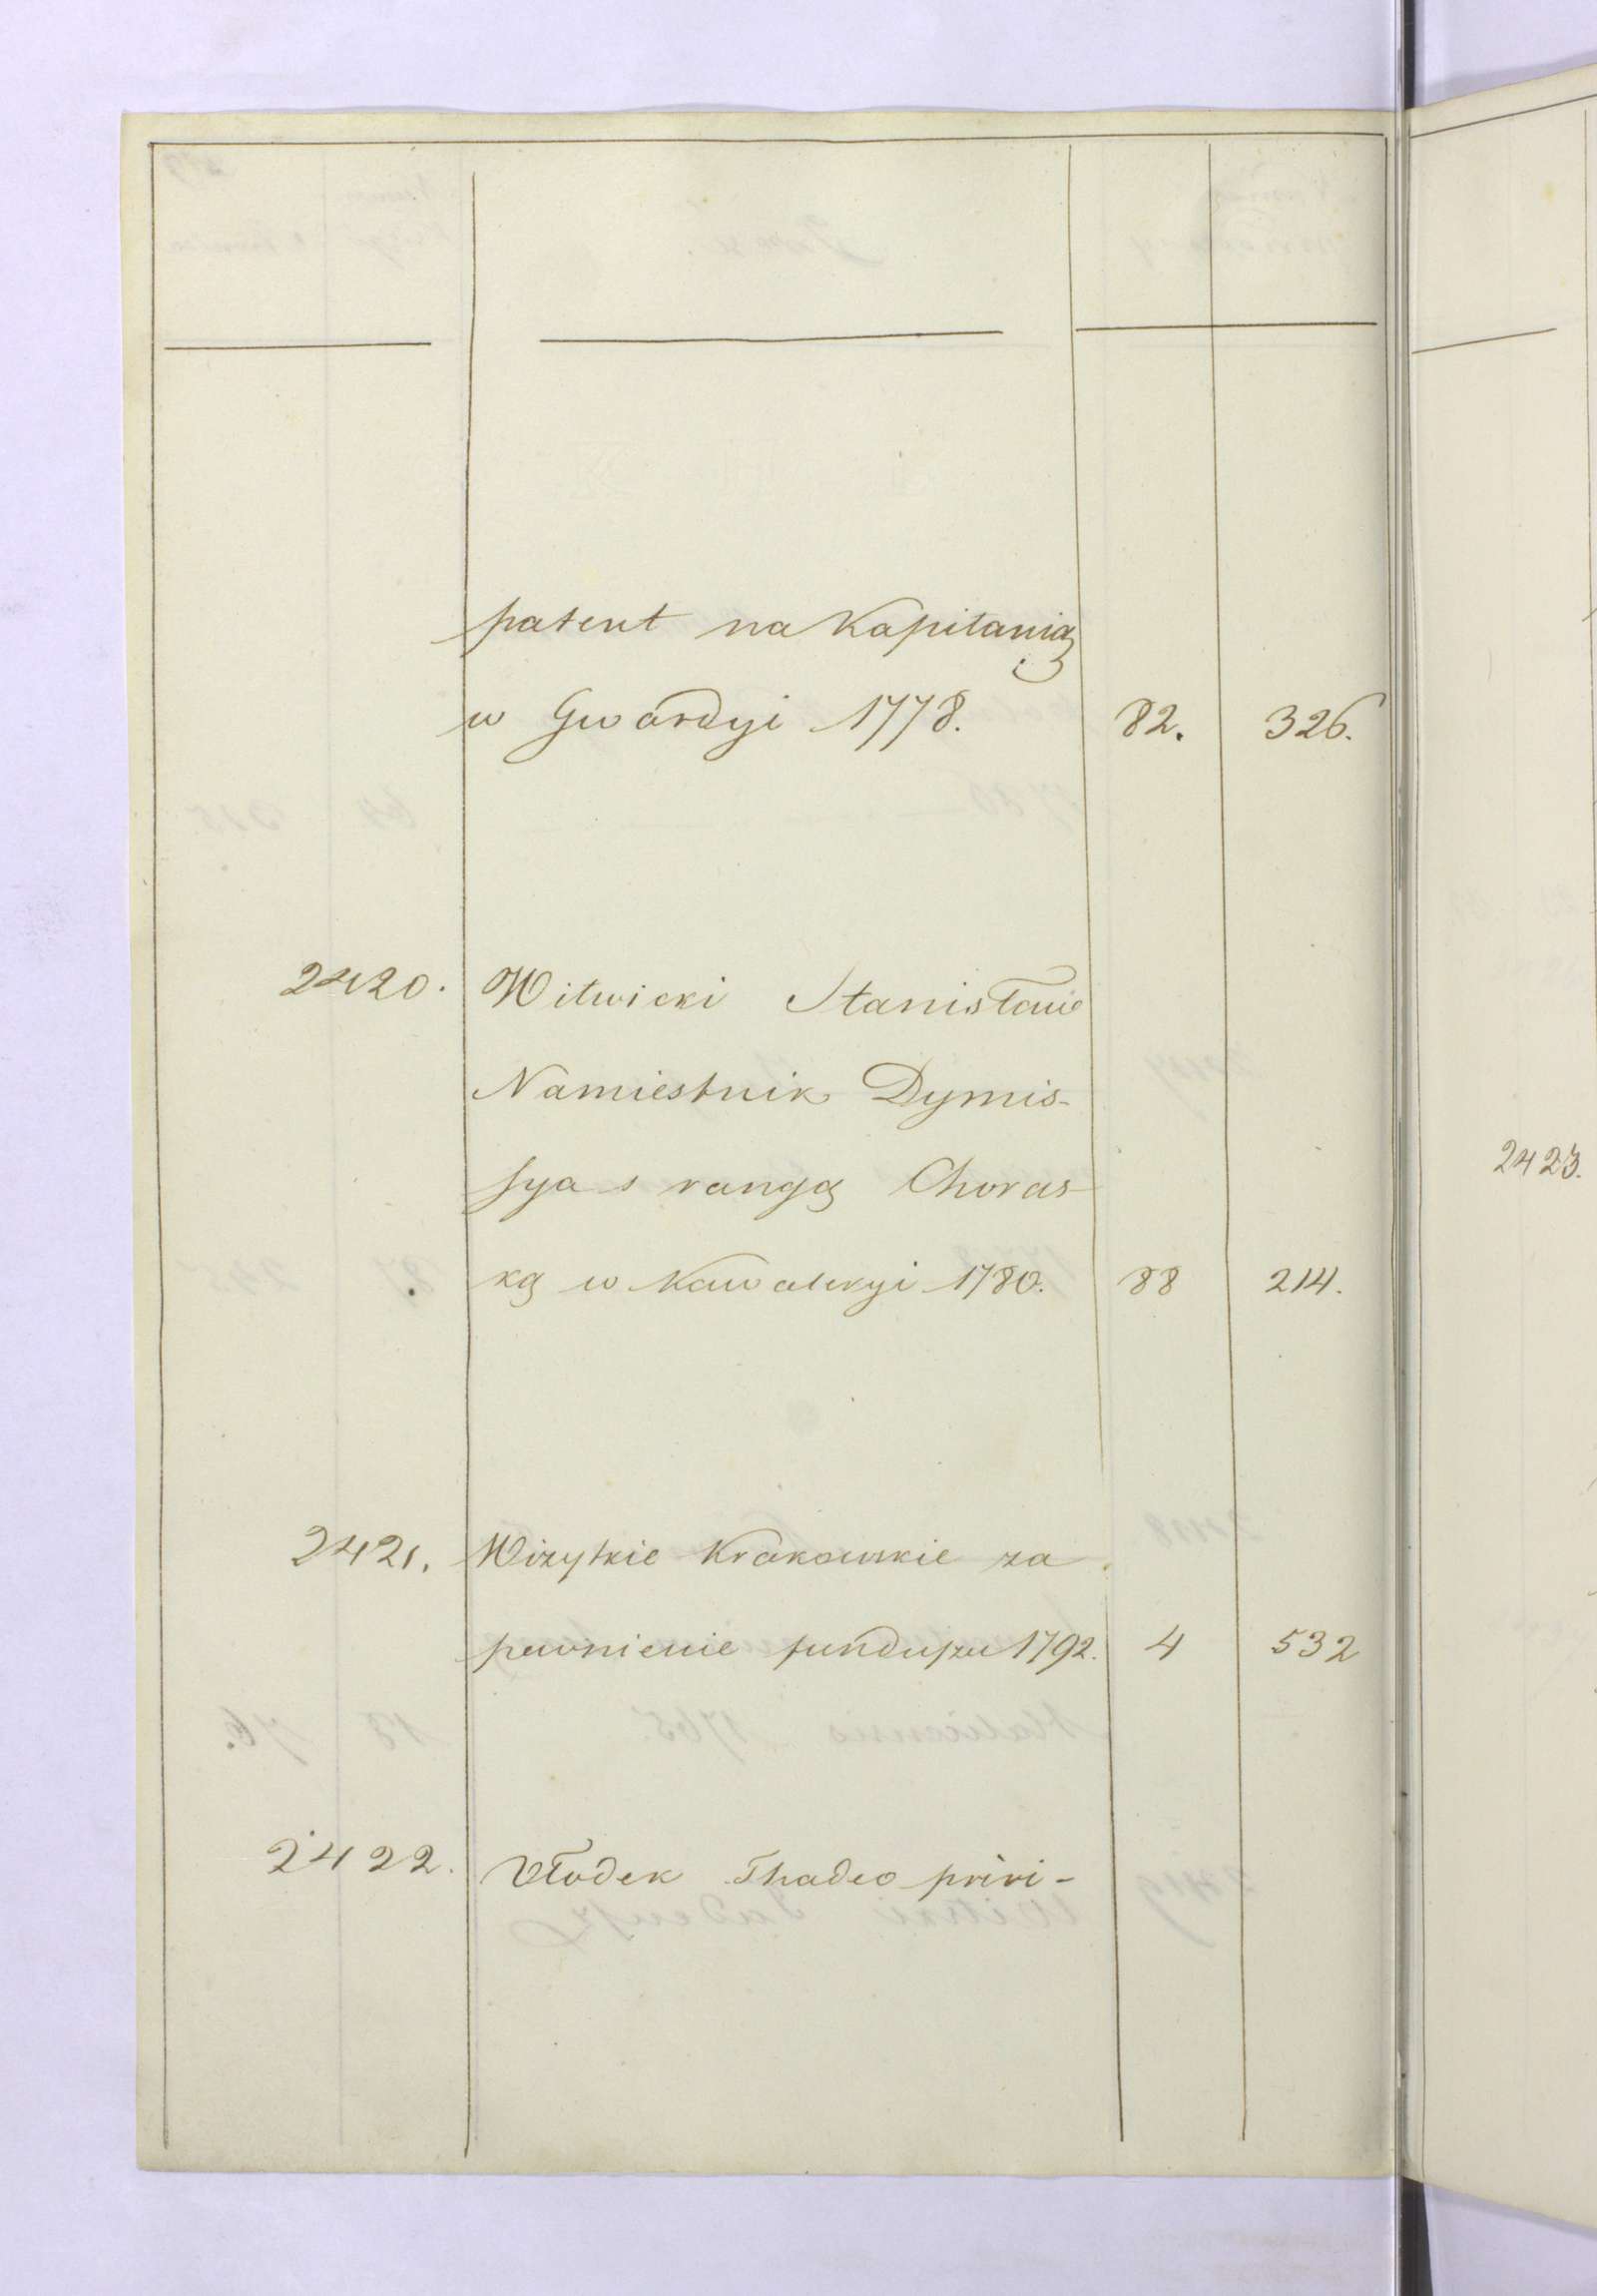 patent na Kapitanią
w Gwardyi 1778. 82. 326.
2420. Witwicki Stanisław
Namiestnik Dymis-
sya s rangą Choras-
ką w Kawaleryi 1780. 88 214.
2421. Wizytkie Krakowskie za
pewnienie funduszu 1792. 4 532
2422. Włodek Thadeo privi-
2423.